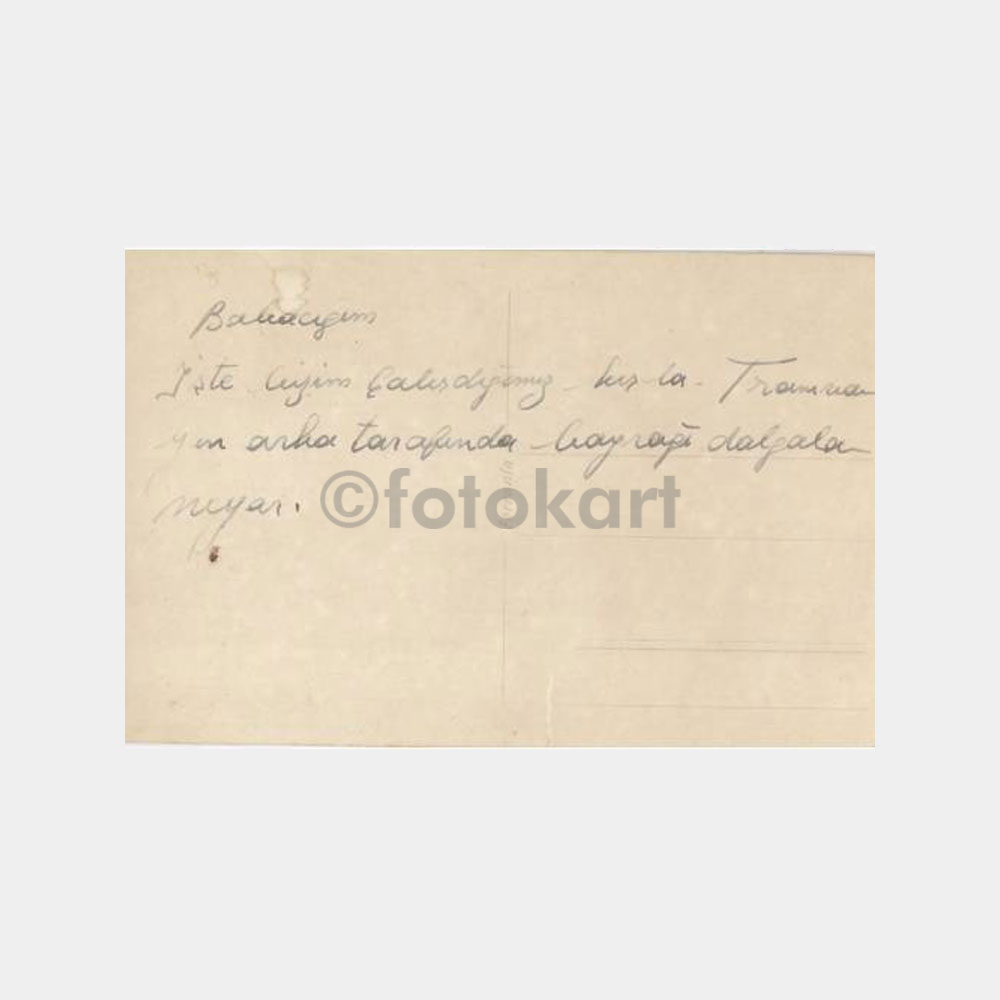 Babacığım
İşte bizim Çalışdığımız kış-la- Tramva
yın arka tarafında bayrağı dalgala
nıyar.
©fotokart